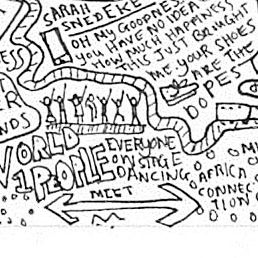 SARAH
SNEDEKER
OH MY GOODNESS
YOU HAVE NO IDEA
HOW MUCH HAPPINESS
THIS JUST BROUGHT
ME YOUR SHOES
ARE THE
DOPEST
WORLD
1 PEOPLE
EVERYONE
ON STAGE
DANCING
MEET
AFRICA
CONNEC
TION